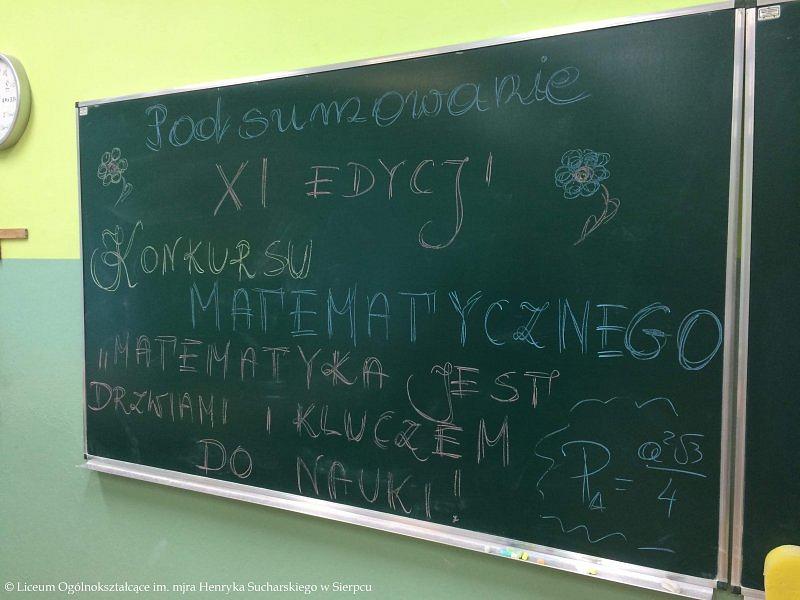 Podsumowanie
XI EDYCJI
KONKURSU
MATEMATYCZNEGO
„MATEMATYKA JEST
DRZWIAMI I KLUCZEM
DO NAUKI!
P△ = a²√3/4
© Liceum Ogólnokształcące im. mjra Henryka Sucharskiego w Sierpcu